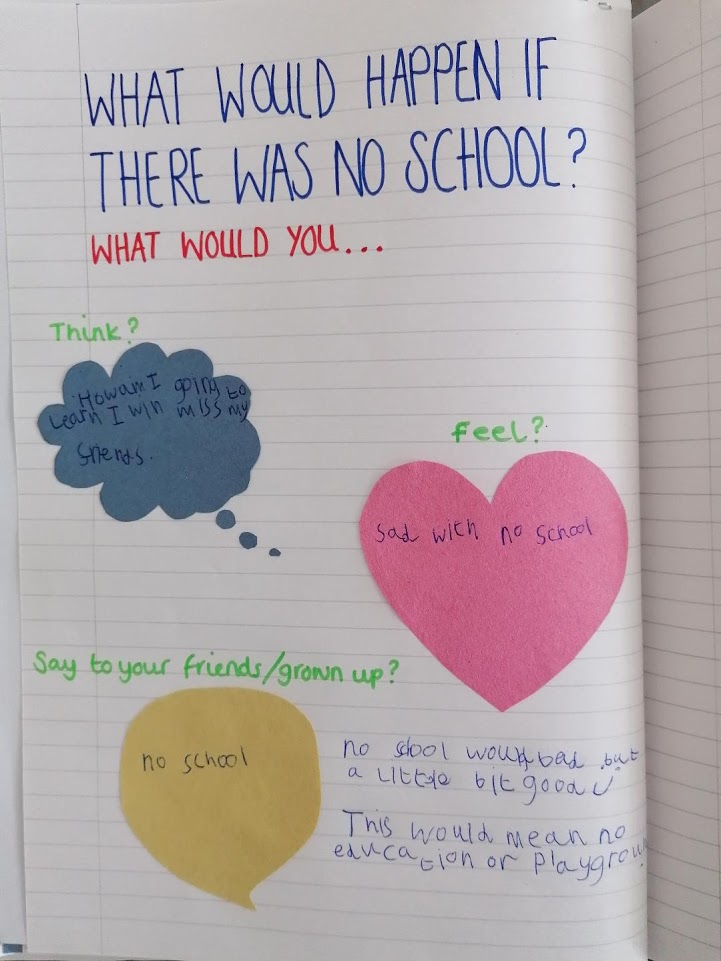 WHAT WOULD HAPPEN IF
THERE WAS NO SCHOOL?
WHAT WOULD YOU...
Think?
How am I going to
Learn I win miss my
friends.
Feel?
Sad with no school
Say to your friends/grown up?
no school
no school would bad but
a little bit good
This would mean no
education or playgrou